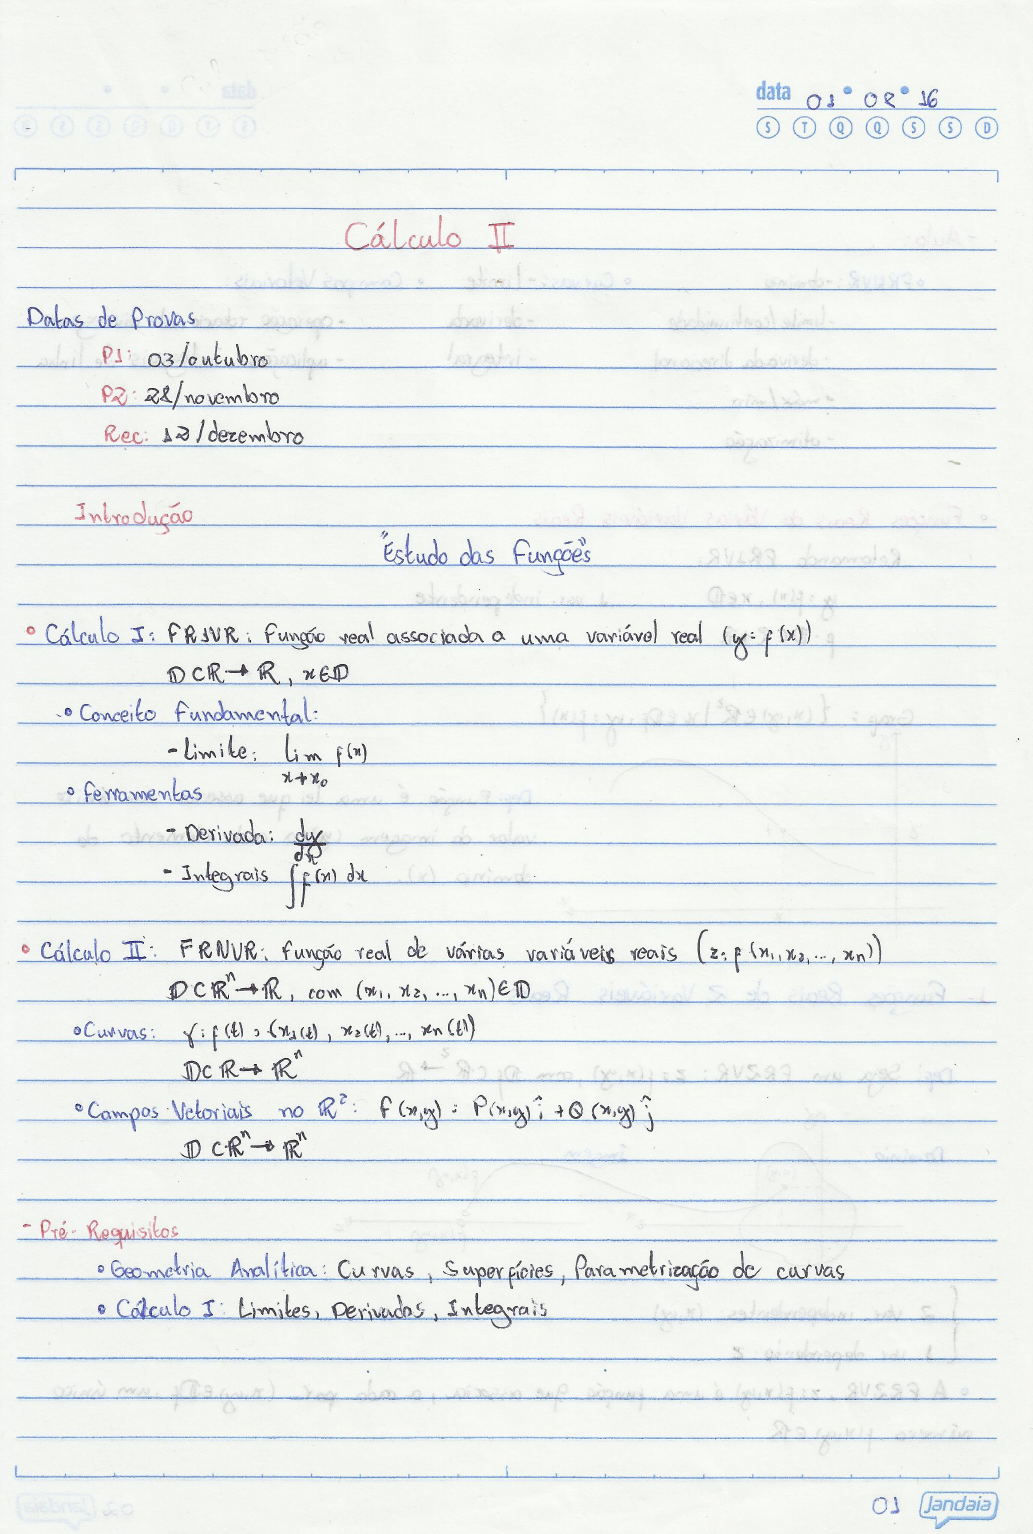 data 01 • 08 • 16
S T Q Q S S D
Cálculo II
Datas de Provas
P1: 03/outubro
P2: 28/novembro
Rec: 12/dezembro
Introdução
"Estudo das Funções"
• Cálculo I: FR1VR: Função real associada a uma variável real (y=f(x))
D⊂ℝ→ℝ, x∈D
• Conceito Fundamental:
- Limite: lim f(x)
x→x₀
• Ferramentas
- Derivada: dy/dx
- Integrais ∫f(x) dx
• Cálculo II: FRNVR: Função real de várias variáveis reais (z=f(x₁,x₂,...,xn))
D⊂ℝⁿ→ℝ, com (x₁,x₂,...,xn)∈D
• Curvas: γ=f(t)=(x₁(t), x₂(t),..., xn(t))
D⊂ℝ→ℝⁿ
• Campos Vetoriais no ℝ²: F(x,y)=P(x,y)î+Q(x,y)ĵ
D⊂ℝⁿ→ℝⁿ
- Pré-Requisitos
• Geometria Analítica: Curvas, Superfícies, Parametrização de curvas
• Cálculo I: Limites, Derivadas, Integrais
01 Jandaia